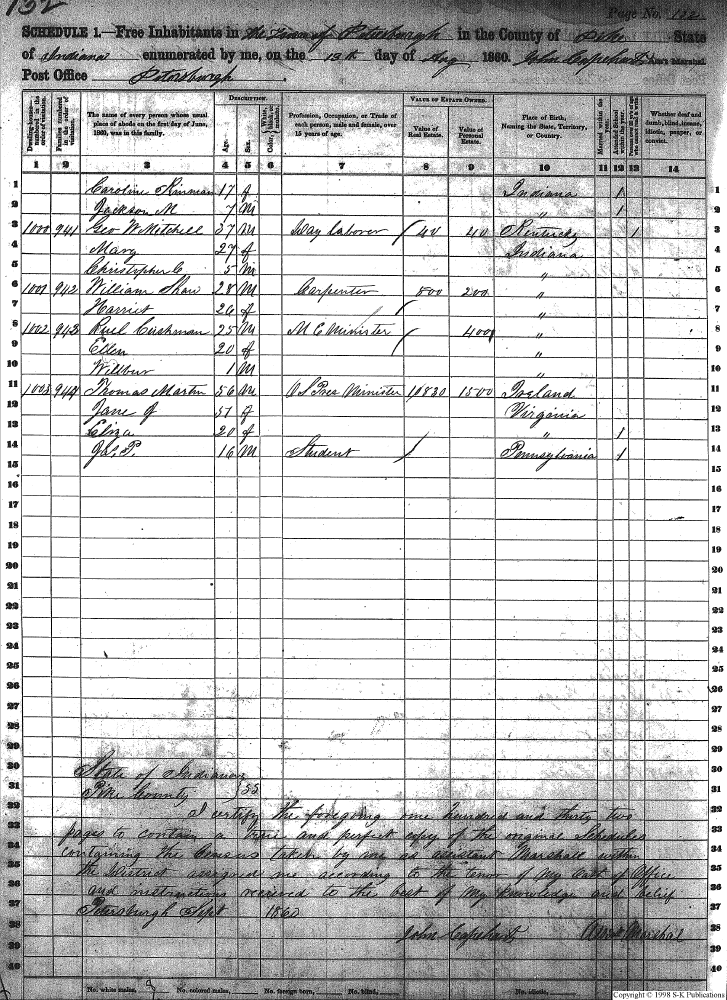 132
Page No. 132
SCHEDULE 1.—Free Inhabitants in the Town of Petersburgh in the County of Pike State
of Indiana enumerated by me, on the 13th day of Aug 1860. John Capehart Ass't Marshal.
Post Office Petersburgh.
Dwelling-houses numbered in the order of visitation.
Families numbered in the order of visitation.
The name of every person whose usual place of abode on the first day of June, 1860, was in this family.
DESCRIPTION.
Age.
Sex.
Color
Profession, Occupation, or Trade of each person, male and female, over 15 years of age.
VALUE OF ESTATE OWNED.
Value of Real Estate.
Value of Personal Estate.
Place of Birth, Naming the State, Territory, or Country.
Married within the year.
Attended School within the year.
Whether deaf and dumb, blind, insane, idiotic, pauper, or convict.
1 2 3 4 5 6 7 8 9 10 11 12 13 14
1 Caroline Kinman 17 f Indiana / 1
2 Jackson M 7 m " / 2
3 1000 941 Geo W Mitchell 37 m Day labover 40 40 Kentucky / 3
4 Mary 27 f Indiana 4
5 Christopher C 5 m " 5
6 1001 942 William Shaw 28 m Carpenter 800 200 " 6
7 Harriet 26 f " 7
8 1002 943 Ruel Cushman 25 m M E Minister 400 " 8
9 Ellen 20 f " 9
10 Willbur 1 m " 10
11 1003 944 Thomas Martin 56 m O S Pres Minister 10830 1500 Ireland 11
12 Jane J 51 f Virginia 12
13 Eliza 20 f " / 13
14 Ja's. P. 16 m Student Pennsylvania / 14
15 15
16 16
17 17
18 18
19 19
20 20
21 21
22 22
23 23
24 24
25 25
26 26
27 27
28 28
29 29
30 State of Indiana 30
31 Pike County } SS 31
32 I certify the foregoing one hundred and thirty two 32
33 pages to contain a true and perfect copy of the original Schedules 33
34 containing the Census taken by me as assistant Marshall within 34
35 the District assigned me according to the tenor of my oath of Office 35
36 and instructions received to the best of my knowledge and belief 36
37 Petersburgh Sept 1860 37
38 John Capehart Ass't Marshal 38
39 39
40 40
No. white males, 9 No. colored males, No. foreign born, No. blind, No. idiotic,
Copyright © 1998 S-K Publications